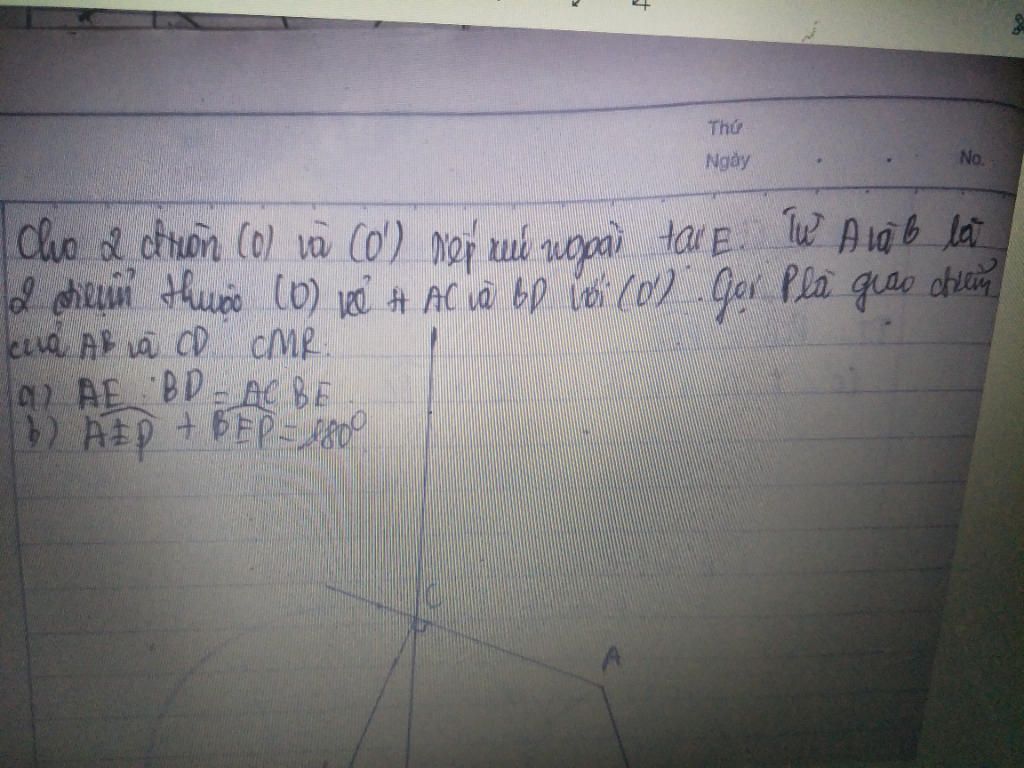 Thứ
Ngày No.
Cho 2 đtròn (O) và (O') tiếp xúc ngoài tại E. Từ A và B là
2 điểm thuộc (O) vẽ tt AC và BD với (O'). Gọi P là giao điểm
của AB và CD CMR:
a) AE . BD = AC BE.
b) AEP + BEP = 180⁰
C
A